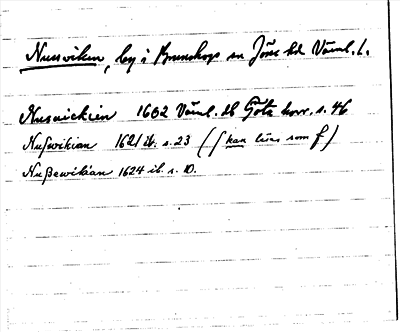 Nussviken, by i Brunskogs sn Jösse hd Värml. l.
Nusuickien 1602 Värml. lb Götz korr. s. 46
Nuſwikian 1621 ib. s. 23 (ſ kan läsas som f)
Nußewikian 1624 ib. s. 10.